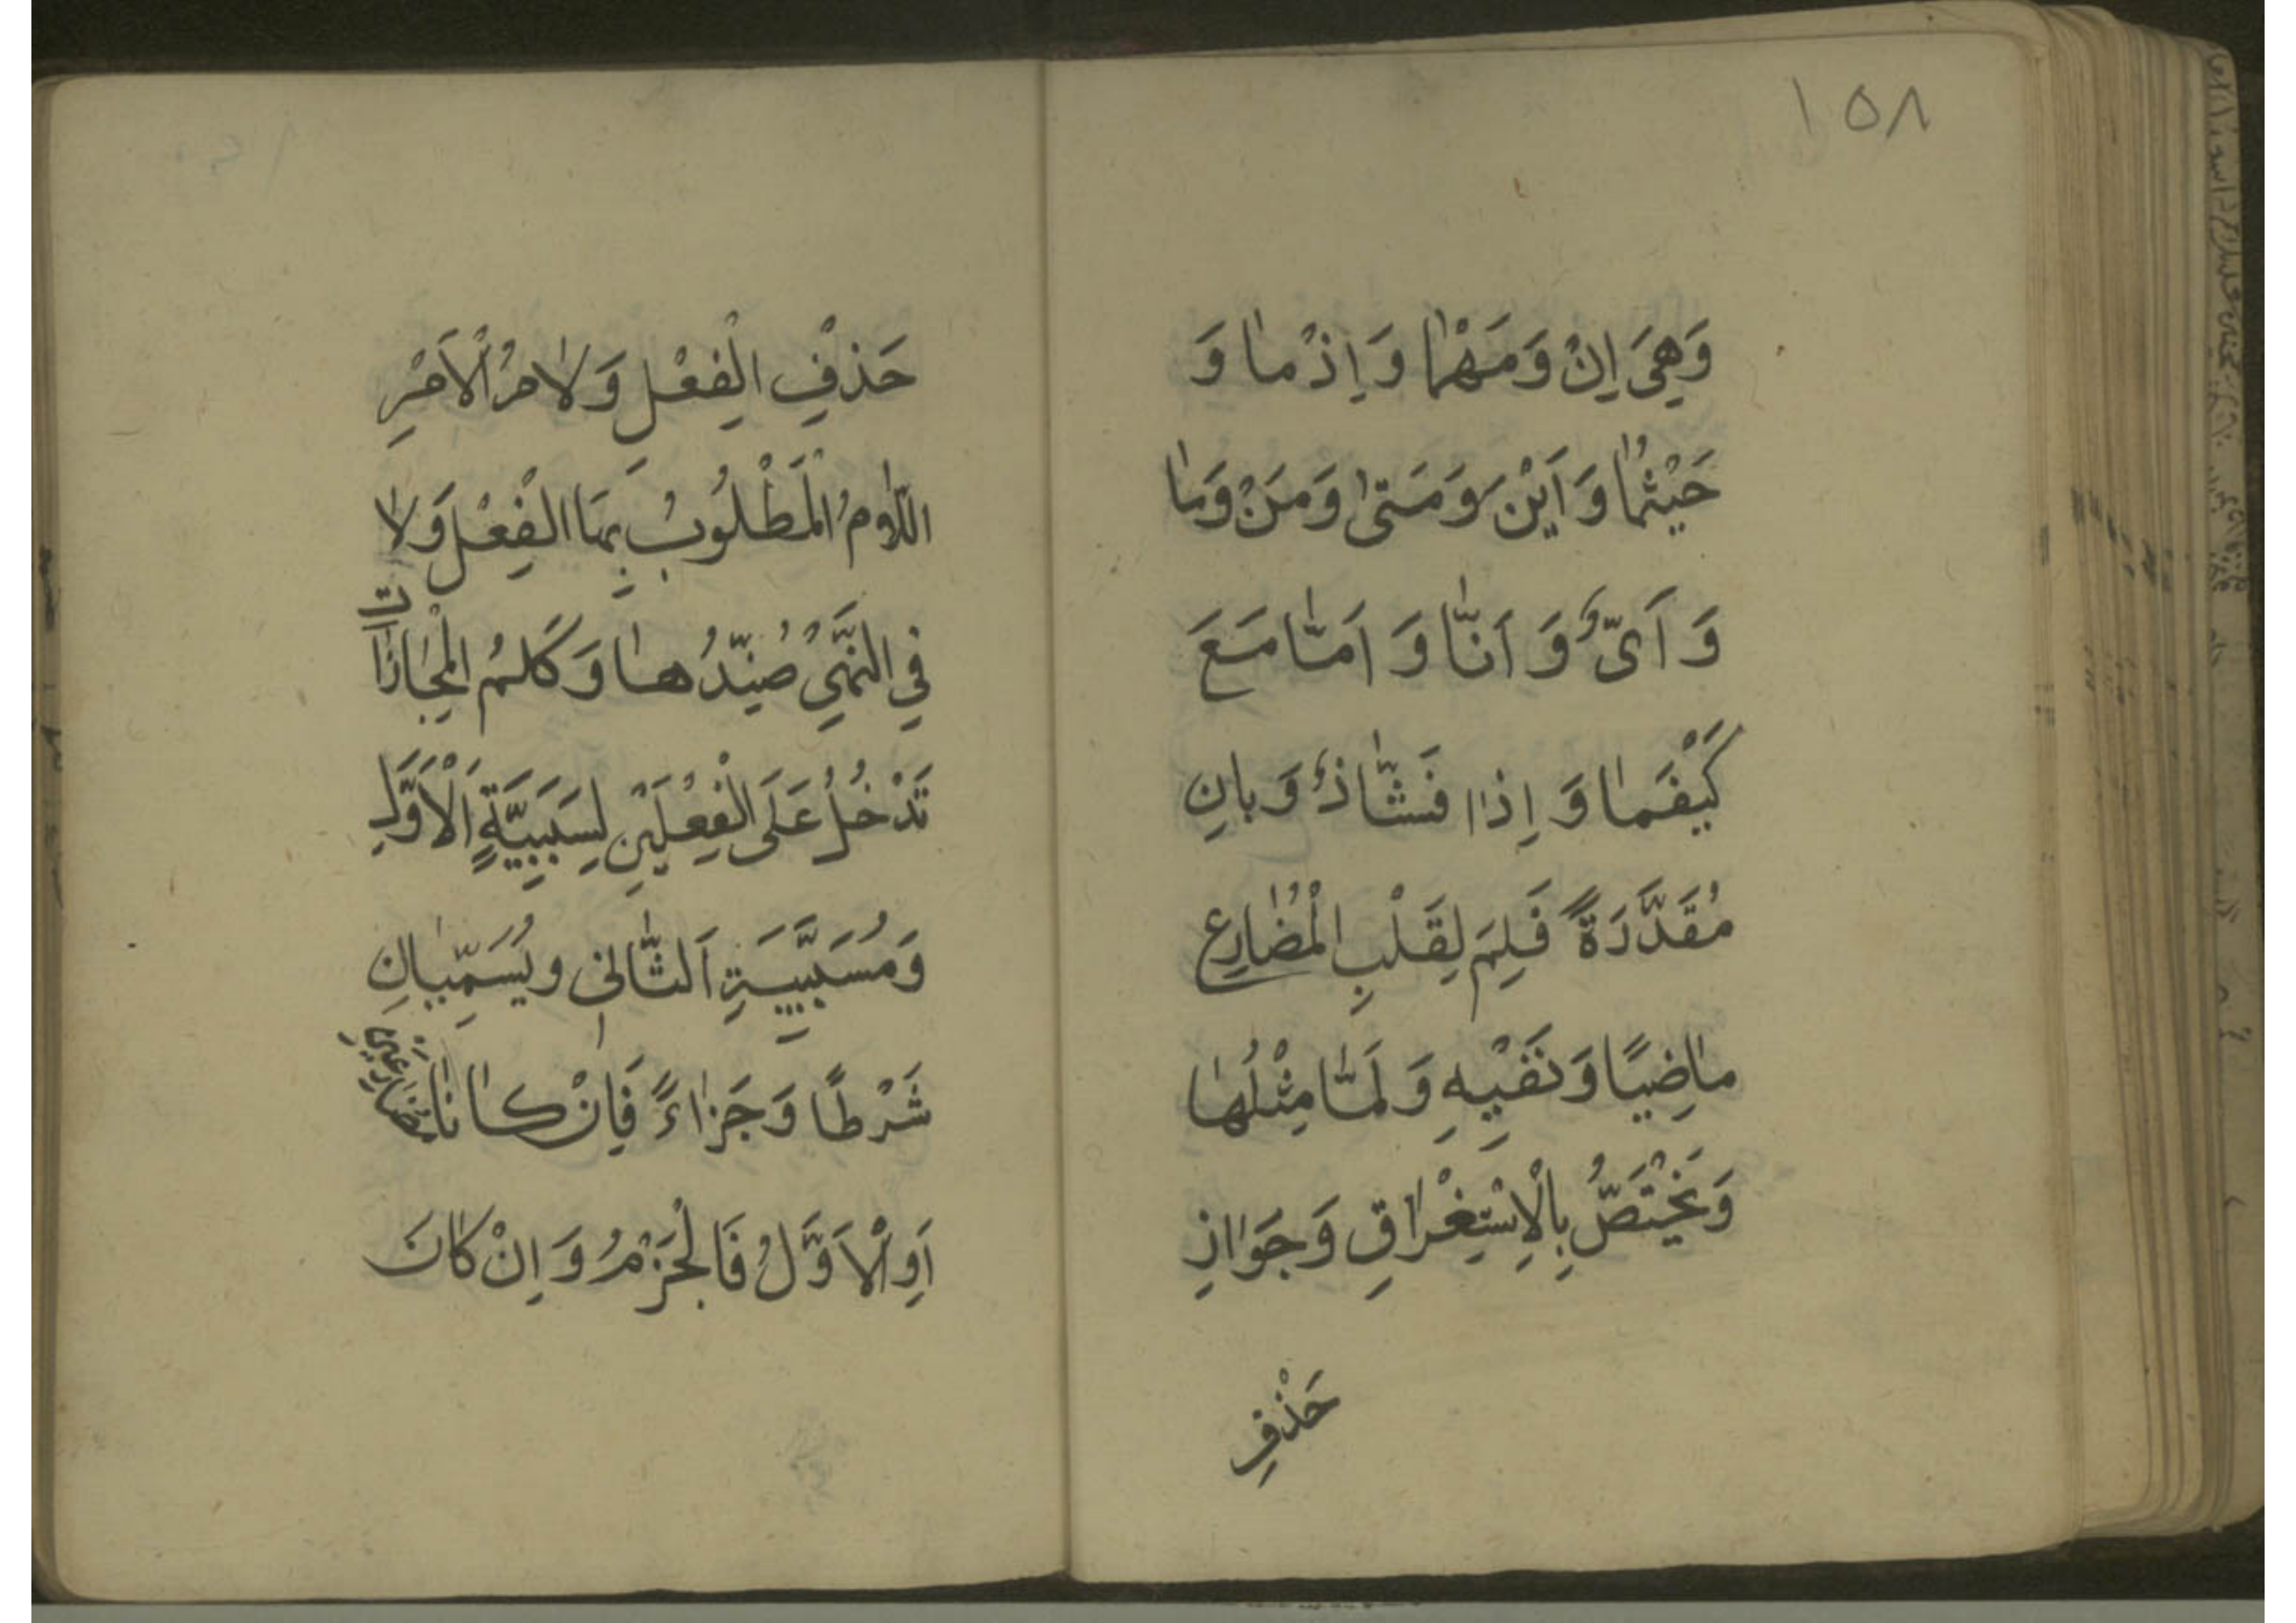 ١٥٨
وَهِيَ اِنْ وَمَهْمٰا وَاِذْمٰا وَ
حَيْثُمٰا وَاَيْنَ وَمَتىٰ وَمَنْ وَمٰا
وَاَىٌّ وَاَنّٰا وَاَمّٰا مَعَ
كَيْفَمٰا وَاِذٰا فَشٰاذٌّ وَبِانِ
مُقَدَّرَةً فَلِمَ لِقَلْبِ الْمُضٰارِعِ
مٰاضِيًا وَنَفْيِهِ وَلَمّٰا مِثْلُهٰا
وَيَخْتَصُّ بِالْاِسْتِغْرٰاقِ وَجَوٰازِ
حَذْفِ
حَذْفِ الْفِعْلِ وَلٰامُ الْاَمْرِ
اللّٰامُ الْمَطْلُوبُ بِهَا الْفِعْلُ وَلٰا
فِي النَّهْيِ ضِدُّهٰا وَكَلِمُ الْمُجٰازٰاتِ
تَدْخُلُ عَلَى الْفِعْلَيْنِ لِسَبَبِيَّةِ اَلْاَوَّلِ
وَمُسَبَّبِيَّةِ اَلثّٰانِى وَيُسَمَّيٰانِ
شَرْطًا وَجَزٰاءً فَاِنْ كٰانٰا مُضٰارِعَيْنِ
اَوِ الْاَوَّلُ فَالْجَزْمُ وَاِنْ كٰانَ